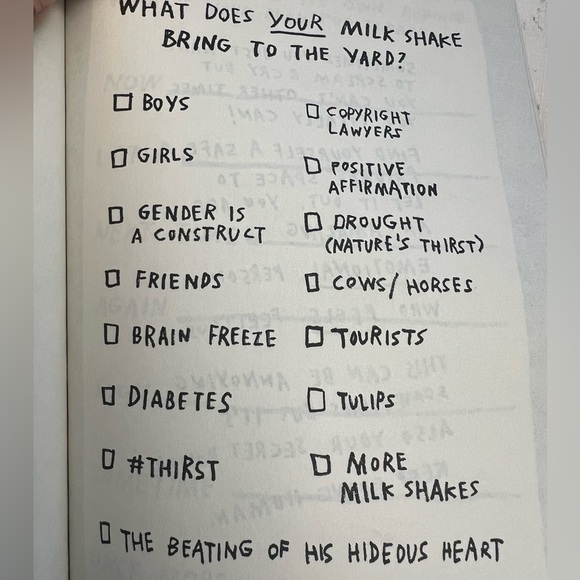 WHAT DOES YOUR MILK SHAKE
BRING TO THE YARD?
BOYS
GIRLS
GENDER IS
A CONSTRUCT
FRIENDS
BRAIN FREEZE
DIABETES
#THIRST
COPYRIGHT
LAWYERS
POSITIVE
AFFIRMATION
DROUGHT
(NATURE'S THIRST)
COWS/HORSES
TOURISTS
TULIPS
MORE
MILK SHAKES
THE BEATING OF HIS HIDEOUS HEART